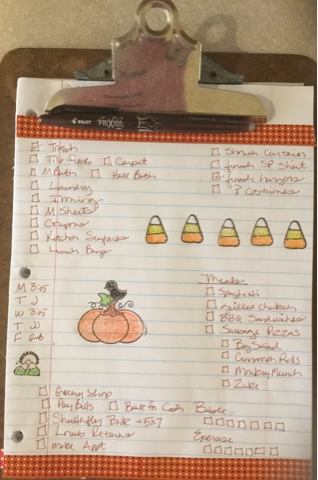 PILOT FriXion
Trash
Tile floors Carpet
M Bath Hall Bath
Laundry
Ironing
M Sheets
Crayons
Kitchen Surfaces
Lunch Bags
Shower Curtain
finish SP Shirt
finish hangers
3 Costumes
M 3:15
T
W 3:15
T
F
Meals
Spaghetti
grilled chicken
BBQ Sandwiches
Sausage Pizzas
Big Salad
Cinnamon Rolls
Monkey Munch
Grocery Shop
Pay Bills Bank to Cash Bible
Shutterfly Book + 5x7
Lowes Returns
Make Appt
Exercise